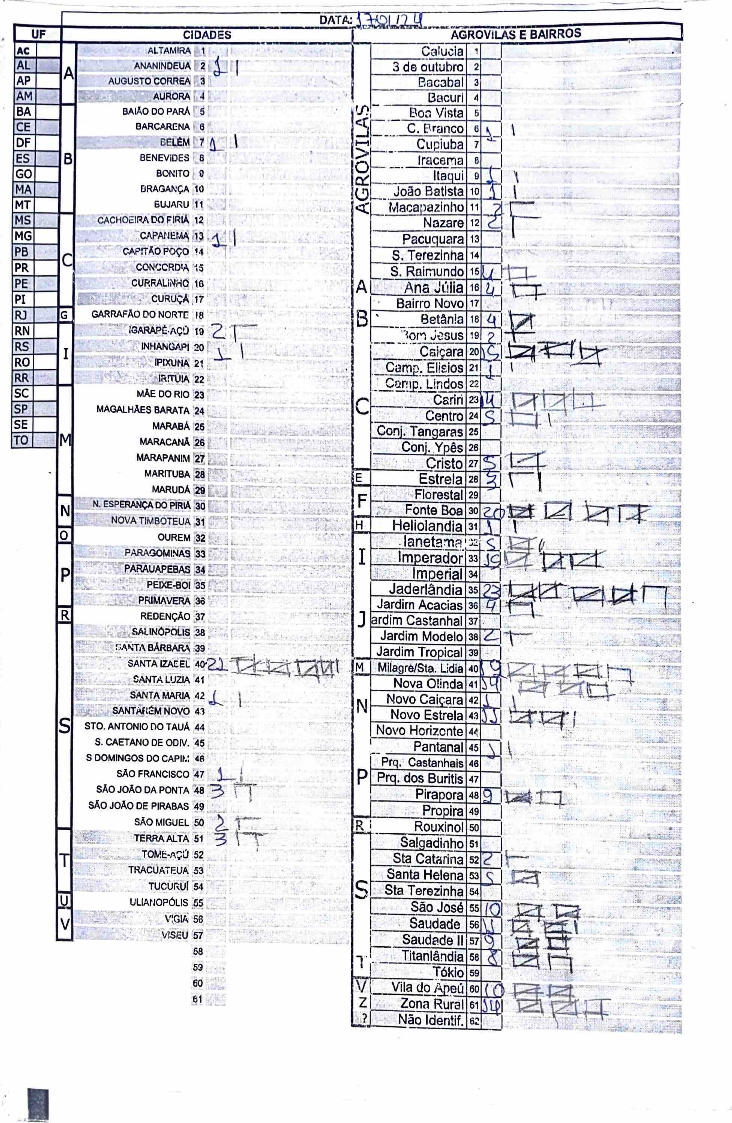 DATA: 17/01/24
UF
CIDADES
AGROVILAS E BAIRROS
AC
AL
AP
AM
BA
CE
DF
ES
GO
MA
MT
MS
MG
PB
PR
PE
PI
RJ
RN
RS
RO
RR
SC
SP
SE
TO
A
ALTAMIRA 1
ANANINDEUA 2 1
AUGUSTO CORREA 3
AURORA 4
B
BAIÃO DO PARÁ 5
BARCARENA 6
BELÉM 7 1
BENEVIDES 8
BONITO 9
BRAGANÇA 10
BUJARU 11
C
CACHOEIRA DO PIRIÁ 12
CAPANEMA 13 1
CAPITÃO POÇO 14
CONCORDIA 15
CURRALINHO 16
CURUÇÁ 17
G
GARRAFÃO DO NORTE 18
I
IGARAPÉ-AÇÚ 19 2
INHANGAPI 20 1
IPIXUNA 21
IRITUIA 22
M
MÃE DO RIO 23
MAGALHÃES BARATA 24
MARABÁ 25
MARACANÃ 26
MARAPANIM 27
MARITUBA 28
MARUDÁ 29
N
N. ESPERANÇA DO PIRIA 30
NOVA TIMBOTEUA 31
O
OUREM 32
P
PARAGOMINAS 33
PARAUAPEBAS 34
PEIXE-BOI 35
PRIMAVERA 36
R
REDENÇÃO 37
S
SALINÓPOLIS 38
SANTA BÁRBARA 39
SANTA IZABEL 40 21
SANTA LUZIA 41
SANTA MARIA 42 1
SANTARÉM NOVO 43
STO. ANTONIO DO TAUÁ 44
S. CAETANO DE ODIV. 45
S DOMINGOS DO CAPIM 46
SÃO FRANCISCO 47 1
SÃO JOÃO DA PONTA 48 3
SÃO JOÃO DE PIRABAS 49
SÃO MIGUEL 50 2
T
TERRA ALTA 51 3
TOME-AÇÚ 52
TRACUATEUA 53
TUCURUÍ 54
U
ULIANOPÓLIS 55
V
VIGIA 56
VISEU 57
58
59
60
61
AGROVILAS
Calucia 1
3 de outubro 2
Bacabal 3
Bacuri 4
Boa Vista 5
C. Branco 6 1
Cupiuba 7
Iracema 8
Itaqui 9 1
João Batista 10 1
Macapazinho 11 3
Nazare 12 2
Pacuquara 13
S. Terezinha 14
S. Raimundo 15 4
A
Ana Júlia 16 4
B
Bairro Novo 17
Betânia 18 4
Bom Jesus 19 2
Caiçara 20 15
C
Camp. Elísios 21 1
Camp. Lindos 22
Cariri 23 14
Centro 24 5
Conj. Tangaras 25
Conj. Ypês 26
Cristo 27 5
E
Estrela 28 3
F
Florestal 29
Fonte Boa 30 20
H
Heliolandia 31 1
I
Ianetama 32 5
Imperador 33 15
Imperial 34
J
Jaderlândia 35 23
Jardim Acacias 36 4
Jardim Castanhal 37
Jardim Modelo 38 2
Jardim Tropical 39
M
Milagre/Sta. Lidia 40 19
N
Nova Olinda 41 14
Novo Caiçara 42 1
Novo Estrela 43 11
Novo Horizonte 44
P
Pantanal 45 1
Prq. Castanhais 46
Prq. dos Buritis 47
Pirapora 48 9
Propira 49
R
Rouxinol 50
S
Salgadinho 51
Sta Catarina 52 2
Santa Helena 53 5
Sta Terezinha 54
São José 55 10
Saudade 56 11
Saudade II 57 9
T
Titanlândia 58 8
Tókio 59
V
Vila do Apeú 60 10
Z
Zona Rural 61 14
?
Não Identif. 62